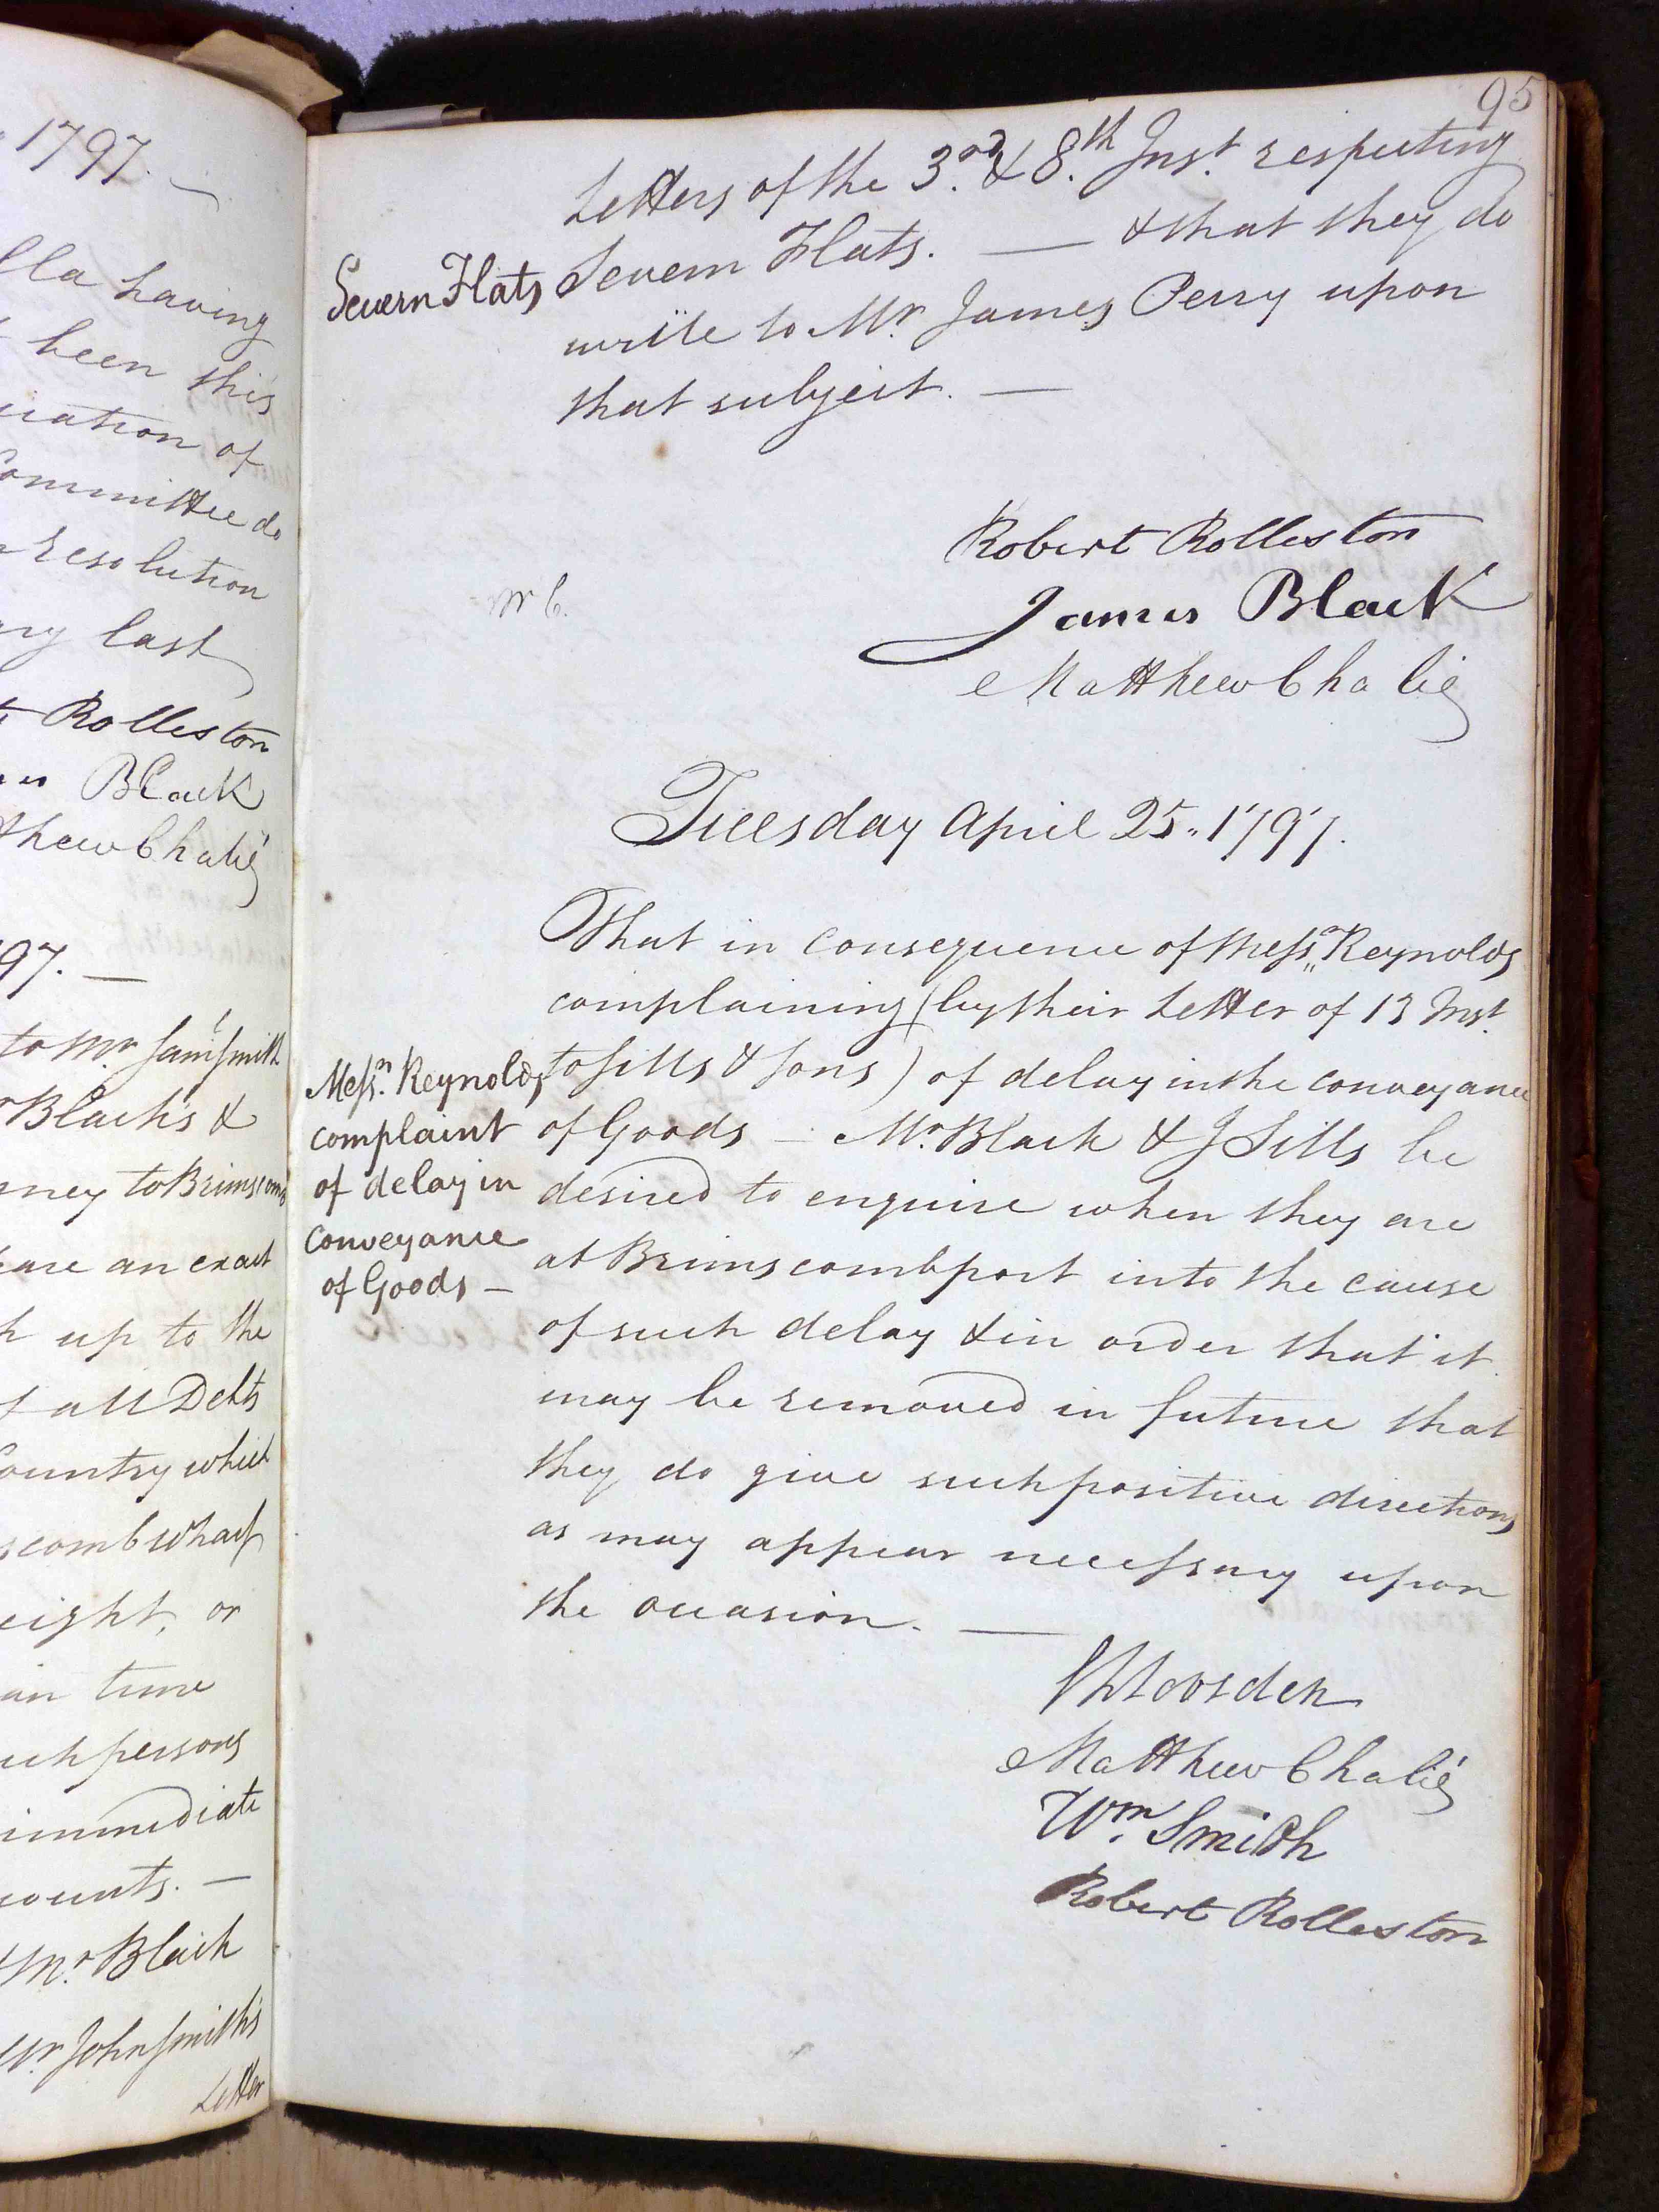 1797.
lla having
been this
ration of
Committee do
Resolution
ry last
Rolleston
Black
thew Chalié
97.
to Mr. Jams. Smith
Black's &
ney to Brimscomb
are an exact
up to the
all Debts
Country which
scomb Wharf
eight, or
in time
uch persons
immediate
counts.
Mr. Black
Mr. John Smith's
Letter
95
Letters of the 3rd. & 8th. Inst. respecting
Severn Flats
Severn Flats. — & that they do
write to Mr. James Perry upon
that subject. —
Robert Rolleston
James Black
Matthew Chalié
Tuesday April 25. 1797.
That in consequence of Messrs. Reynolds
complaining (by their Letter of 13 Inst.
to Sills & Sons) of delay in the conveyance
of Goods — Mr. Black & J Sills be
desired to enquire when they are
at Brimscombport into the cause
of such delay & in order that it
may be removed in future that
they do give such positive directions
as may appear necessary upon
the occasion. —
Messrs. Reynolds
complaint
of delay in
conveyance
of Goods —
Matthew Chalié
Wm. Smith
Robert Rolleston